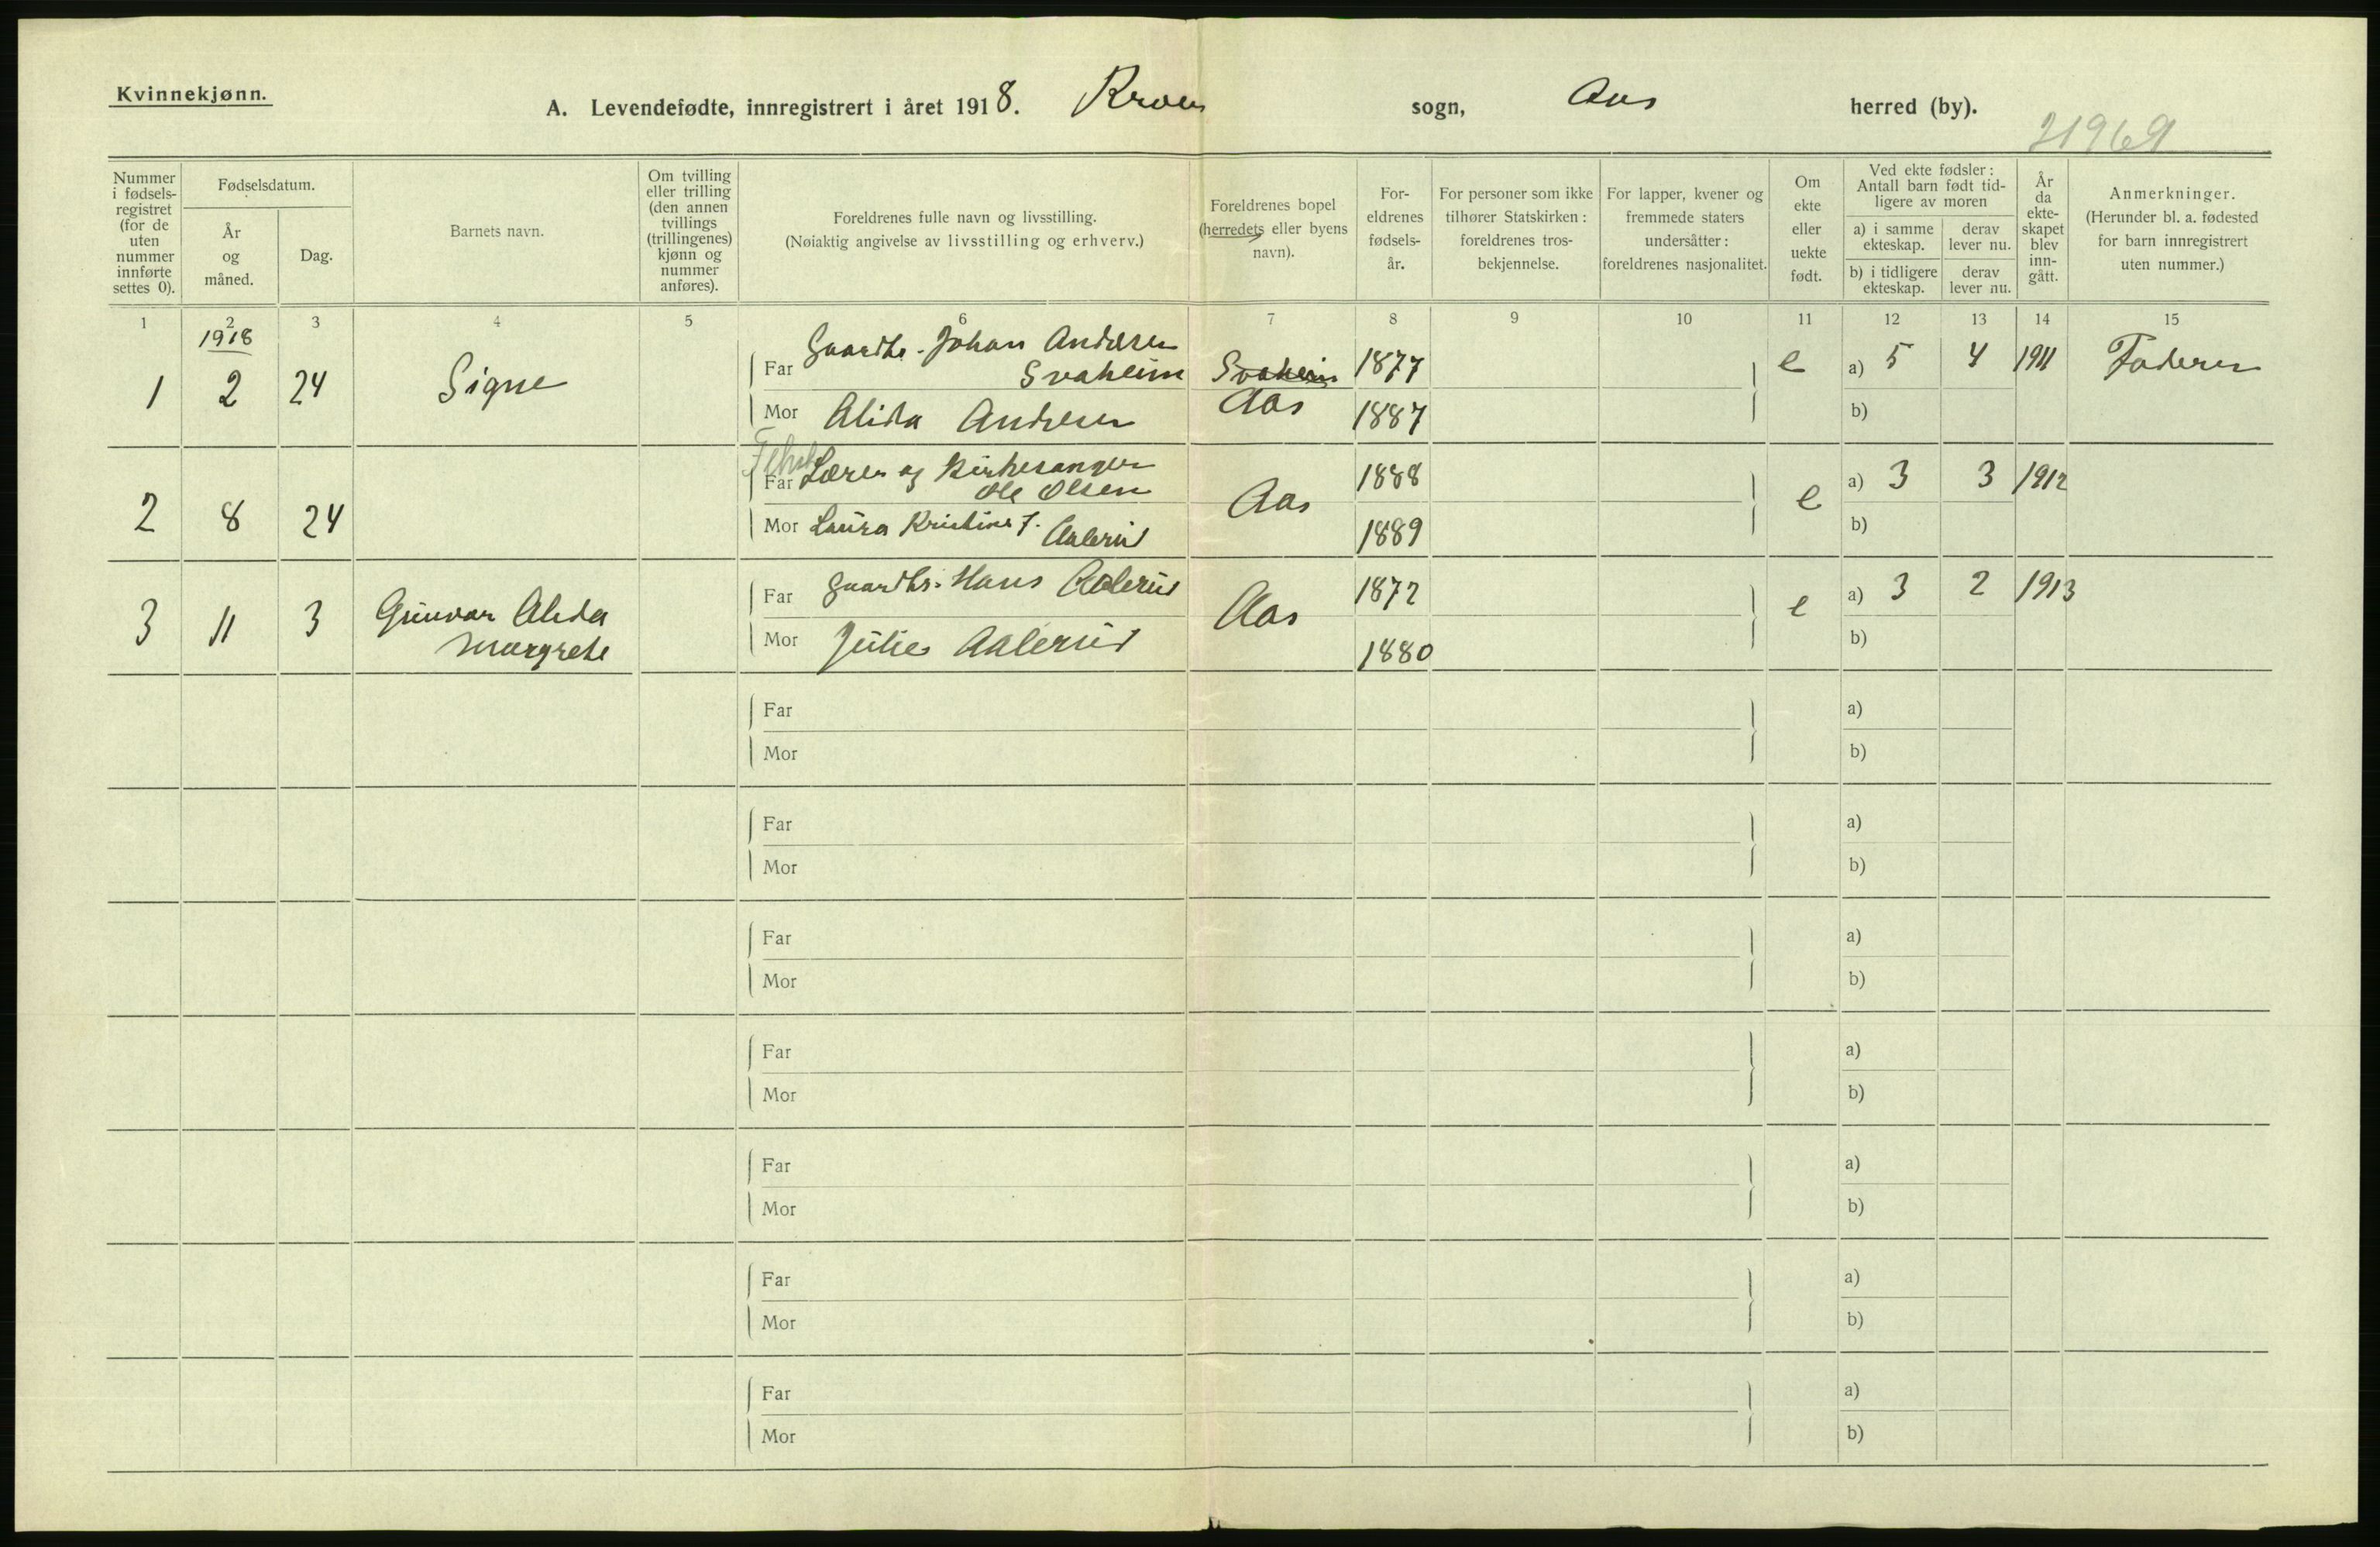 Kvinnekjønn.
A. Levendefødte, innregistrert i året 1918. Kroer sogn, Aas herred (by).
21969
Nummer i fødsels-registret (for de uten nummer innførte settes 0).
Fødselsdatum.
År og måned.
Dag.
Barnets navn.
Om tvilling eller trilling (den annen tvillings (trillingenes) kjønn og nummer anføres).
Foreldrenes fulle navn og livsstilling.
(Nøiaktig angivelse av livsstilling og erhverv.)
Foreldrenes bopel (herredets eller byens navn).
For-eldrenes fødsels-år.
For personer som ikke tilhører Statskirken: foreldrenes tros-bekjennelse.
For lapper, kvener og fremmede staters undersåtter: foreldrenes nasjonalitet.
Om ekte eller uekte født.
Ved ekte fødsler: Antall barn født tid-ligere av moren
a) i samme ekteskap.
derav lever nu.
b) i tidligere ekteskap.
derav lever nu.
År da ekte-skapet blev inn-gått.
Anmerkninger.
(Herunder bl. a. fødested for barn innregistrert uten nummer.)
1 2 3 4 5 6 7 8 9 10 11 12 13 14 15
1918
1 2 24 Signe
Far Gaardbr. Johan Andersen Svaheim Svaheim 1877 e a) 5 4 1911 Faderen
Mor Alida Andersen Aas 1887 b)
2 8 24
Far Lærer og Kirkesanger Ole Olsen Aas 1888 e a) 3 3 1912
Mor Laura Kristine f. Aalerud 1889 b)
3 11 3 Gunvor Alida Margrete
Far Gaardbr. Hans Aalerud Aas 1872 e a) 3 2 1913
Mor Julie Aalerud 1880 b)
Far a)
Mor b)
Far a)
Mor b)
Far a)
Mor b)
Far a)
Mor b)
Far a)
Mor b)
Far a)
Mor b)
Far a)
Mor b)